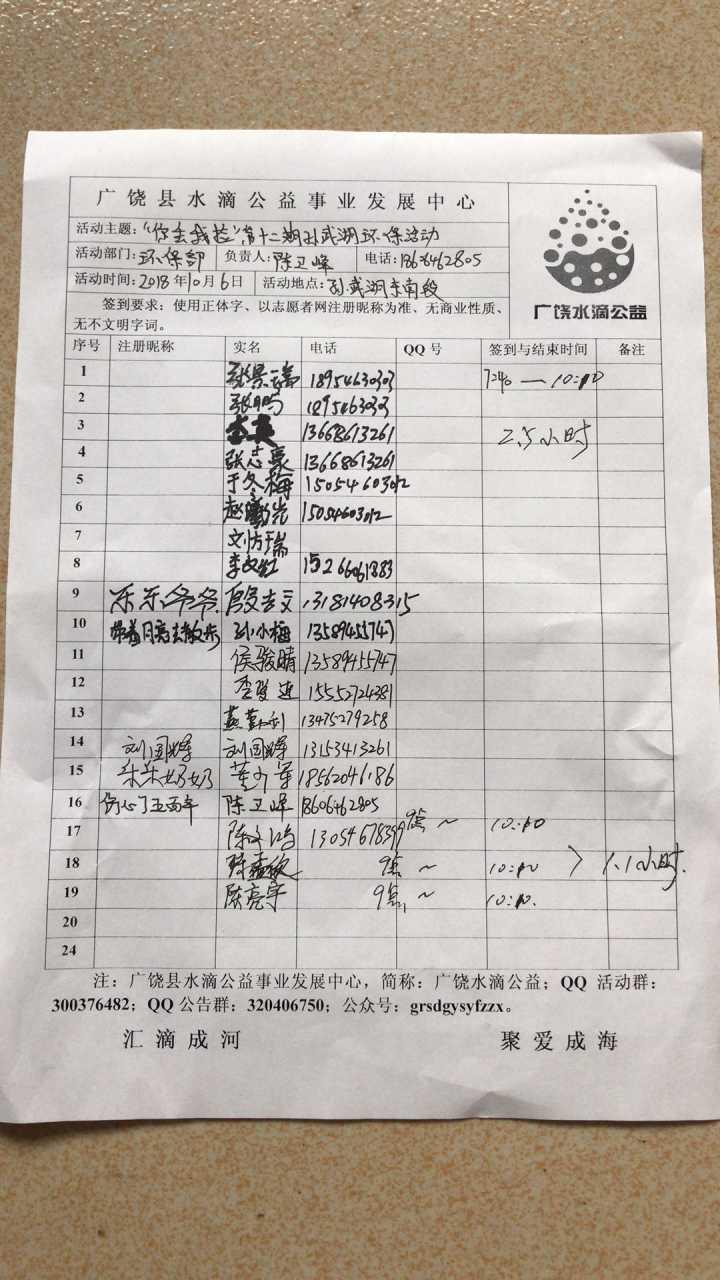 广饶县水滴公益事业发展中心
活动主题：“你丢我捡”第十二期孙武湖环保活动
活动部门：环保部 负责人：陈卫峰 电话：18606462805
活动时间：2018年10月6日 活动地点：孙武湖东南段
签到要求：使用正体字、以志愿者网注册昵称为准、无商业性质、
无不文明字词。
广饶水滴公益
序号 注册昵称 实名 电话 QQ号 签到与结束时间 备注
1 张景瑞 18954630303 7:40—10:10
2 张鸣 18954630303
3 13668613261 2.5小时
4 张志豪 13668613261
5 于冬梅 15054603012
6 赵 15054603012
7 刘方瑞
8 李红 15266061883
9 乐乐爷爷 殷吉文 13181408315
10 带着月亮去散步 孙小梅 13589455747
11 侯骏晴 13589455747
12 15552724381
13 燕 利 13475279258
14 刘国辉 刘国辉 13153413261
15 乐乐奶奶 董 军 18562046186
16 伤心了五百年 陈卫峰 18606462805
17 陈文鸿 13054678399 9点～ 10:10
18 陈 9点～ 10:10 1.1小时
19 陈亮宇 9点～ 10:10.
20
24
注：广饶县水滴公益事业发展中心，简称：广饶水滴公益；QQ 活动群：
300376482；QQ 公告群：320406750；公众号：grsdgysyfzzx。
汇滴成河 聚爱成海